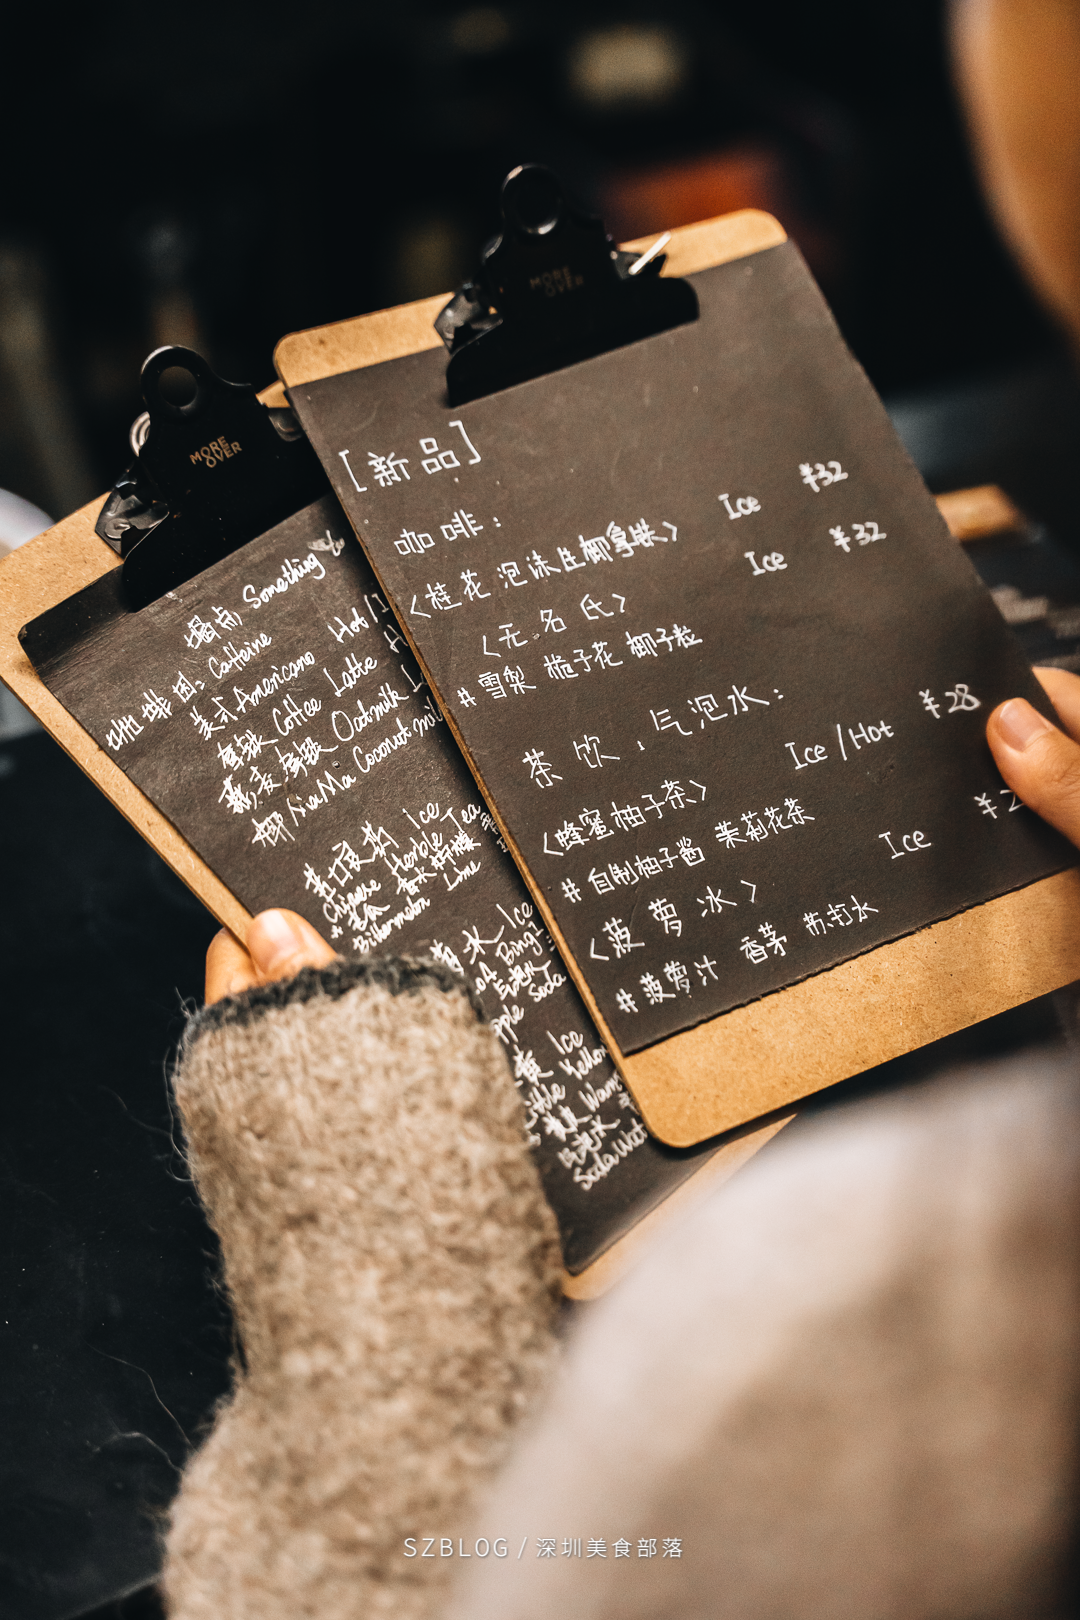 MORE
OVER
[新品]
咖啡:
<桂花泡沫生椰拿铁> Ice ¥32
<无名氏> Ice ¥32
#雪梨 栀子花 椰子粒
茶饮:气泡水:
<蜂蜜柚子茶> Ice/Hot ¥28
#自制柚子酱 茉莉花茶
<菠萝冰> Ice ¥2
#菠萝汁 香茅 苏打水
MORE
OVER
Something
咖啡因: Caffeine
美式 Americano Hot/I
拿铁 Coffee Latte H
燕麦拿铁 Oatmilk L
椰 Coconut mil
Ice
Chinese Herble Tea
Bittermelon Lime
冰 Ice
气泡水
Soda
Ice
Little Yellow
气泡水
Soda Wat
SZBLOG / 深圳美食部落